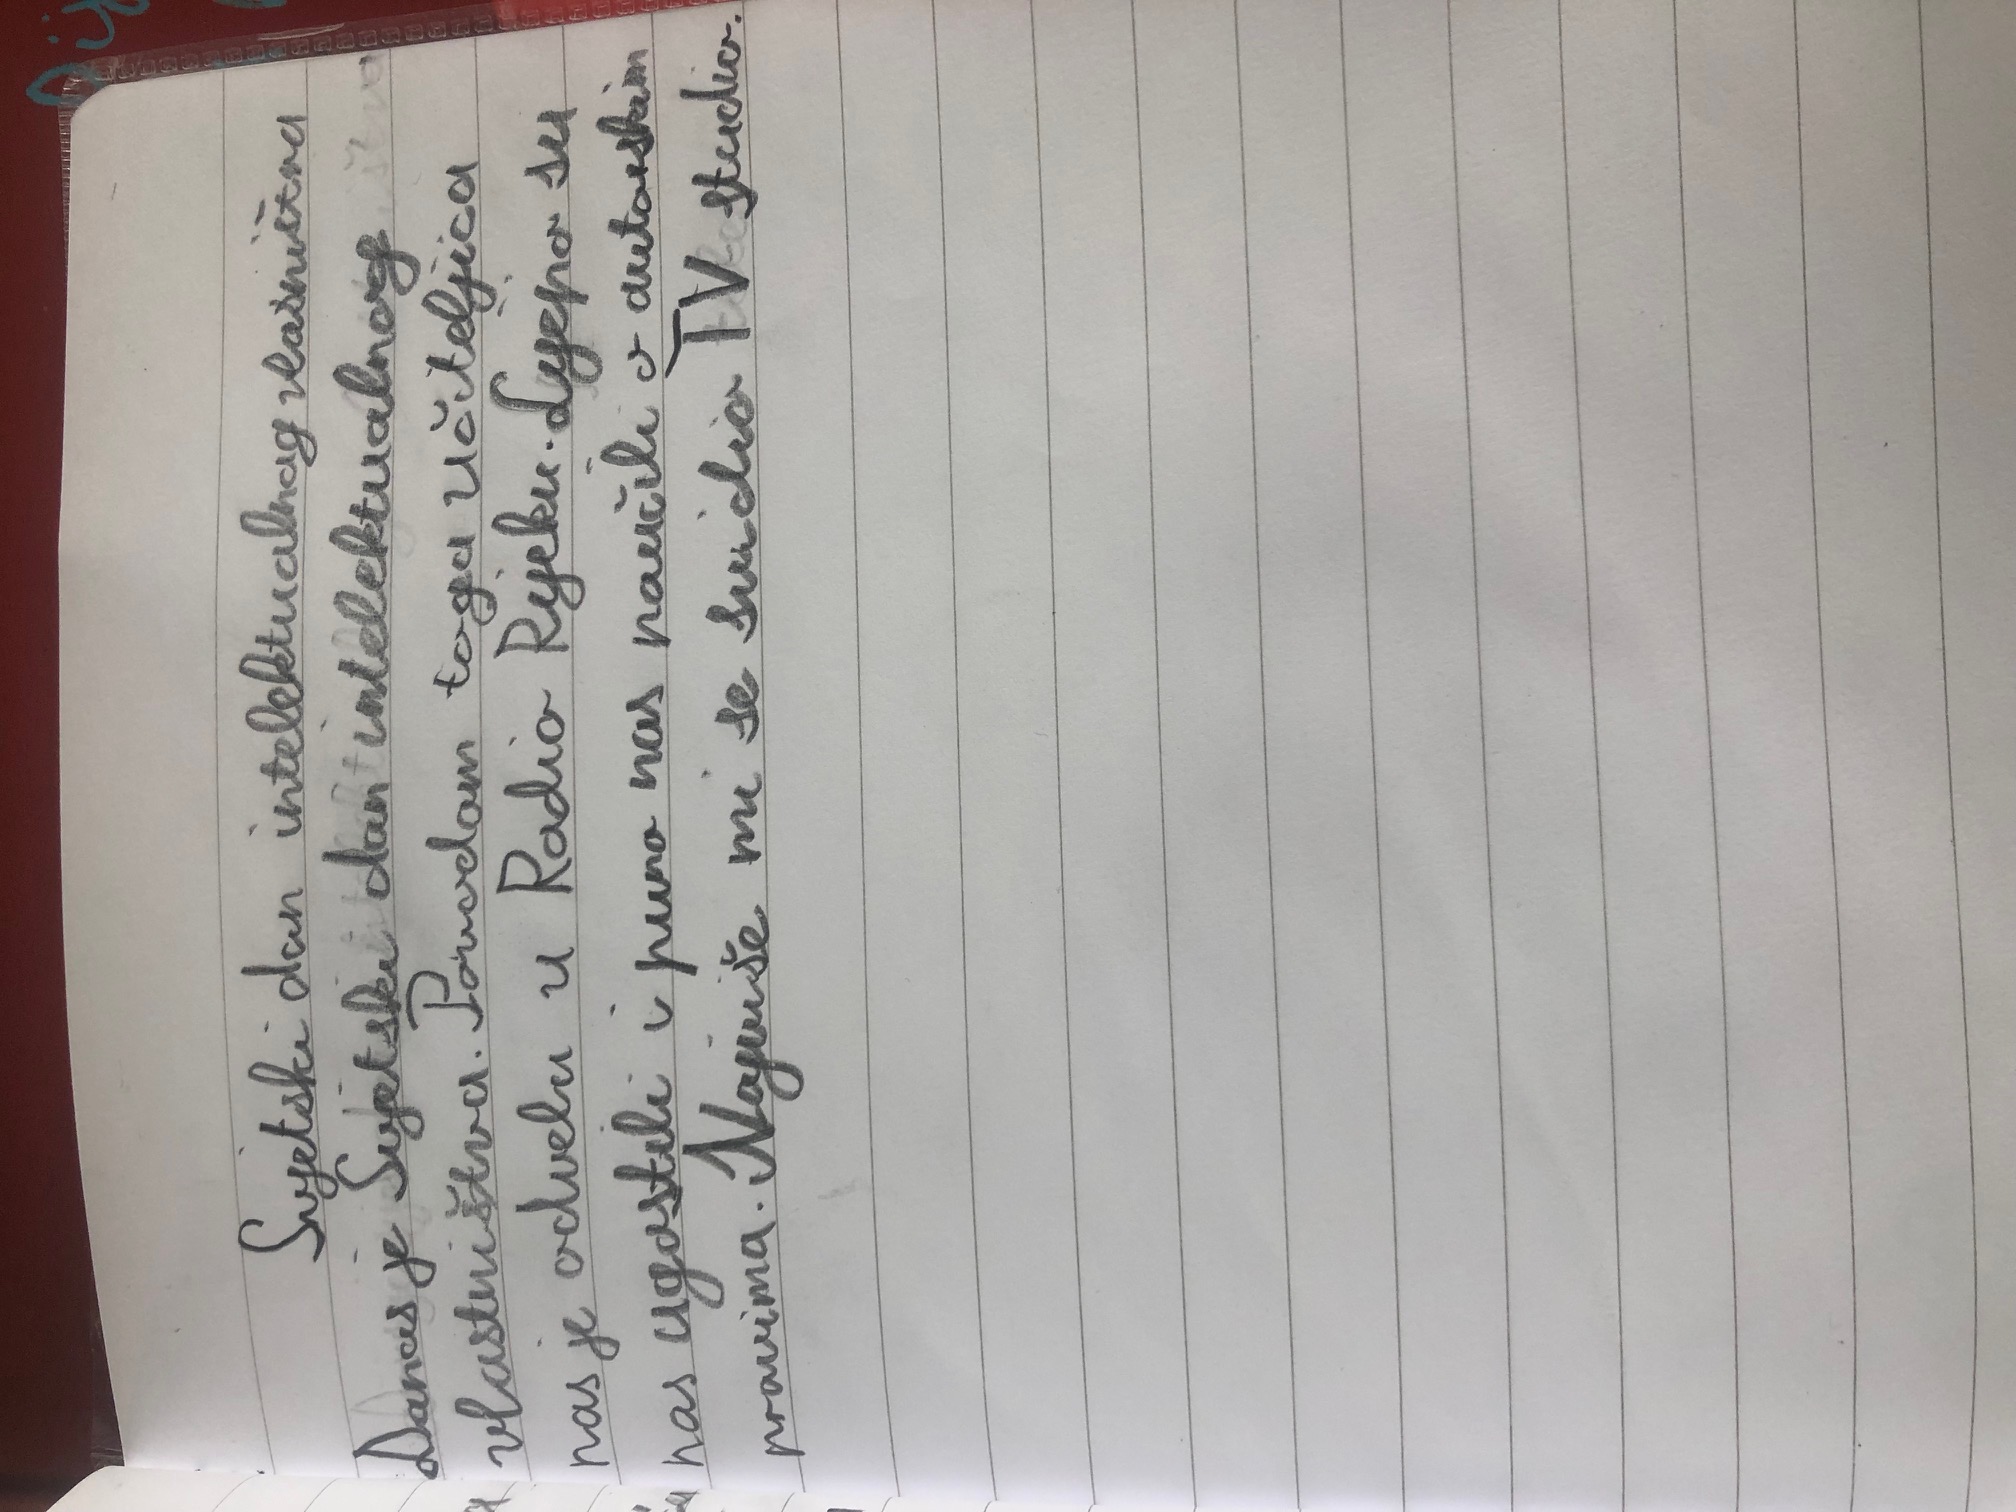 Svjetski dan intelektualnog vlasništva
Danas je Svjetski dan intelektualnog
vlastništva. Povodom toga učiteljica
nas je odvela u Radio Rijeku. Lijepo su
nas ugostili i puno nas naučili o autorskim
pravima. Najviše mi se svidio TV studio.